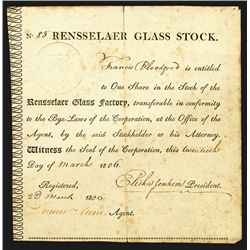 No. 85 RENSSELAER GLASS STOCK.
Francis Bloodgood is entitled
to One Share in the Stock of the
Rensselaer Glass Factory, transferable in conformity
to the Bye-Laws of the Corporation, at the Office of the
Agent, by the said Stockholder or his Attorney.
Witness the Seal of the Corporation, this twentieth
Day of March 1806.
Elisha Jenkins President.
Registered,
2d March 1806
James Kane Agent.